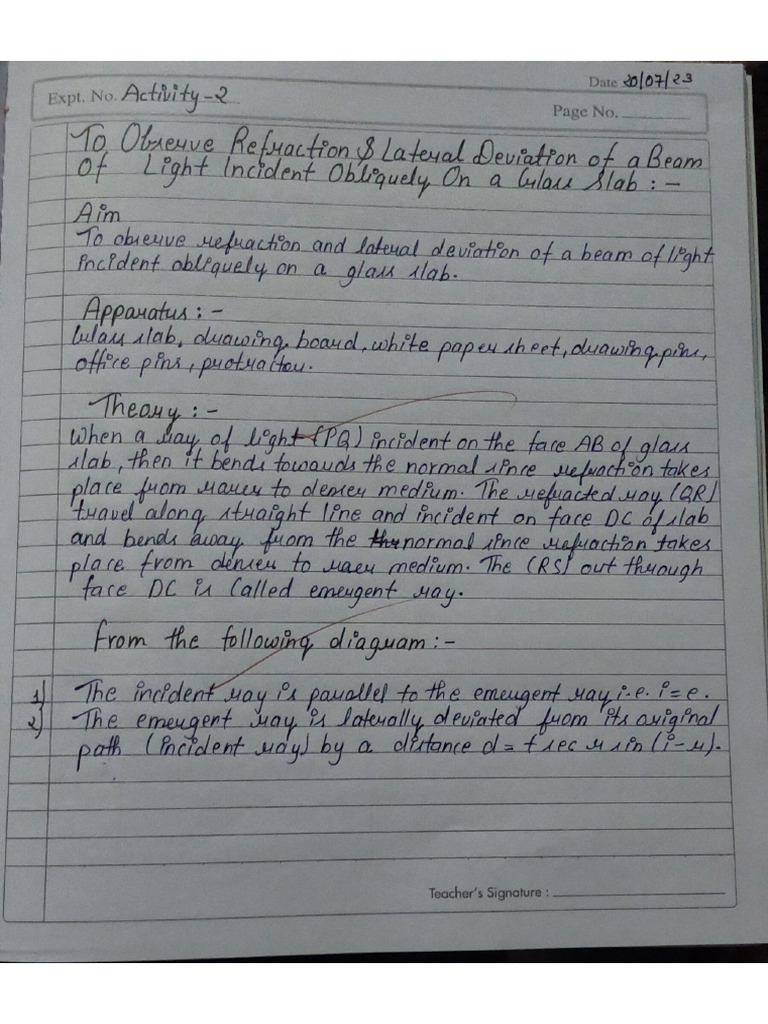 Date 20/07/23
Expt. No. Activity-2
Page No.
To Observe Refraction & Lateral Deviation of a Beam
Of Light Incident Obliquely On a Glass Slab :-
Aim
To observe refraction and lateral deviation of a beam of light
incident obliquely on a glass slab.
Apparatus :-
Glass slab, drawing board, white paper sheet, drawing pins,
office pins, protractor.
Theory :-
When a ray of light (PQ) incident on the face AB of glass
slab, then it bends towards the normal since refraction takes
place from rarer to denser medium. The refracted ray (QR)
travel along straight line and incident on face DC of slab
and bends away from the normal since refraction takes
place from denser to rarer medium. The (RS) out through
face DC is called emergent ray.
From the following diagram :-
1) The incident ray is parallel to the emergent ray i.e. i=e.
2) The emergent ray is laterally deviated from its original
path (incident ray) by a distance d = t sec r sin (i-r).
Teacher's Signature :